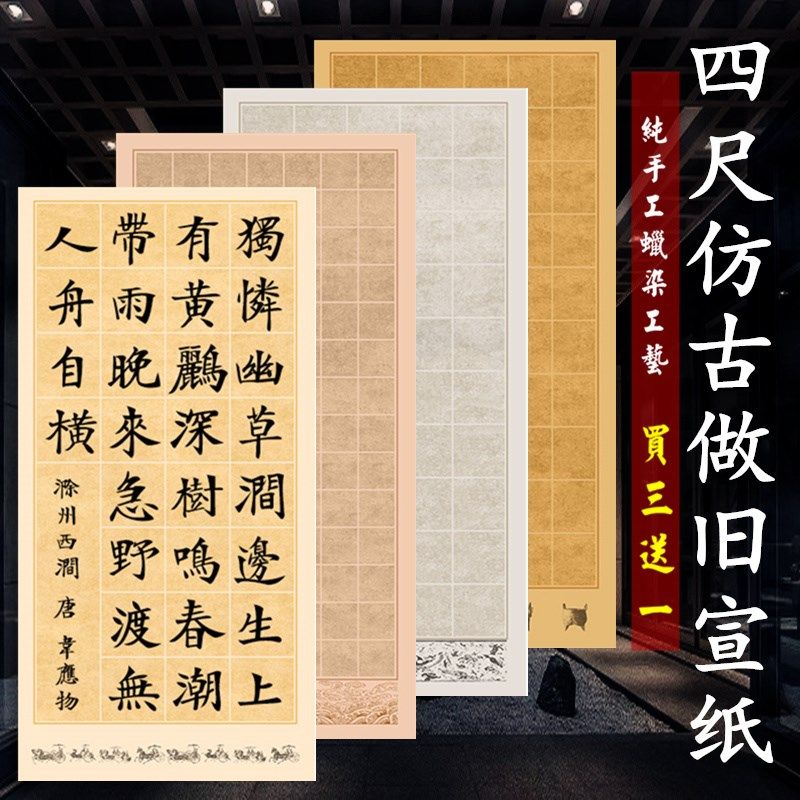 四尺仿古做旧宣纸
純手工蠟染工藝 買三送一
獨憐幽草澗邊生上
有黄鸝深樹鳴春潮
帶雨晚來急野渡無
人舟自横
滁州西澗 唐 韋應物